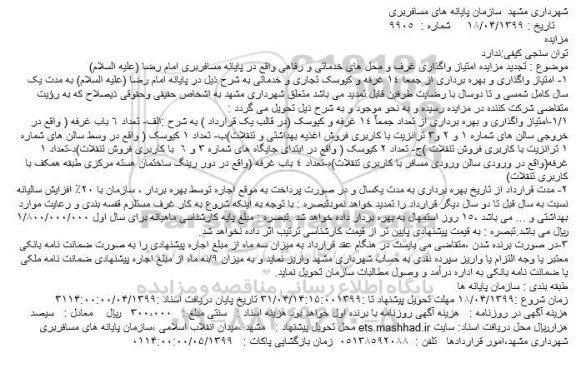 شهرداری مشهد سازمان پایانه های مسافربری
تاریخ : ۱۸/۰۴/۱۳۹۹ شماره : ۹۹۰۵
مزایده
توان سنجی کیفی:ندارد
موضوع : تجدید مزایده امتیاز واگذاری غرف و محل های خدماتی و رفاهی واقع در پایانه مسافربری امام رضا (علیه السلام)
۱- امتیاز واگذاری و بهره برداری از جمعا ۱۴ غرفه و کیوسک تجاری و خدماتی به شرح ذیل در پایانه امام رضا (علیه السلام) به مدت یک
سال کامل شمسی و تا دوسال با رضایت طرفین قابل تمدید می باشد متعلق شهرداری مشهد به اشخاص حقیقی وحقوقی ذیصلاح که به رؤیت
متقاضی شرکت کننده در مزایده رسیده و به نحو موجود و به شرح ذیل تحویل می گردد :
۱/۱-امتیاز واگذاری و بهره برداری از تعداد جمعاً ۱۴ غرفه و کیوسک (در قالب یک قرارداد ) به شرح :الف- تعداد ۶ باب غرفه ( واقع در
خروجی سالن های شماره ۱ و ۲ و۳ ترانزیت با کاربری فروش اغذیه بهداشتی و تنقلات)ب- تعداد ۱ کیوسک ( واقع در وسط سالن های شماره
۱ ترانزیت با کاربری فروش تنقلات )ج- تعداد ۲ کیوسک ( واقع در ابتدای جایگاه های شماره ۳ و ۶ با کاربری فروش تنقلات)د-تعداد ۱
غرفه(واقع در ورودی سالن ورودی مسافر با کاربری تنقلات)ه-تعداد ۴ باب غرفه (واقع در دور رینگ ساختمان هسته مرکزی طبقه همکف با
کاربری تنقلات)
۲- مدت قرارداد از تاریخ بهره برداری به مدت یکسال و در صورت پرداخت به موقع اجاره توسط بهره بردار ، سازمان با ۲۰٪ افزایش سالیانه
نسبت به سال قبل تا دو سال دیگر قرارداد را تمدید خواهد نمودتبصره : با توجه به اینکه شروع به کار غرف مستلزم قفسه بندی و رعایت موارد
بهداشتی و ... می باشد ،۱۵ روز استمهال به بهره بردار داده خواهد شد .تبصره : مبلغ پایه کارشناسی ماهیانه برای سال اول ۱/۸۰۰/۰۰۰/۰۰۰
ریال می باشد.تبصره : به قیمت پیشنهادی پایین تر از قیمت کارشناسی ترتیب اثر داده نخواهد شد.
۳-در صورت برنده شدن ،متقاضی می بایست در هنگام عقد قرارداد به میزان سه ماه از مبلغ اجاره پیشنهادی را به صورت ضمانت نامه بانکی
معتبر یا وجه التزام یا واریز سپرده نقدی به حساب شهرداری مشهد واریز نماید و به میزان ۹/نه ماه از مبلغ اجاره پیشنهادی ضمانت نامه ملکی
یا ضمانت نامه بانکی به اداره درآمد و وصول مطالبات سازمان تحویل نماید.
طبقه بندی : سازمان پایانه ها
زمان شروع :۱۸/۰۴/۱۳۹۹ مهلت تحویل پیشنهاد تا :۳۱/۰۴/۱۳۹۹ ۱۴:۱۵:۰۰ تاریخ پایان دریافت اسناد :
هزینه آگهی در روزنامه : هزینه آگهی روزنامه با برنده اول خواهد بود هزینه اسناد / سنتی مبلغ : ۳۰۰،۰۰۰ ریال معادل : سیصد
هزارریال محل دریافت اسناد: سایت ets.mashhad.ir محل تحویل پیشنهاد : مشهد ،میدان انقلاب اسلامی ،سازمان پایانه های مسافربری
شهرداری مشهد،امور قراردادها تلفن : ۰۵۱۳۸۵۹۲۰۸۸ زمان بازگشایی پاکات :